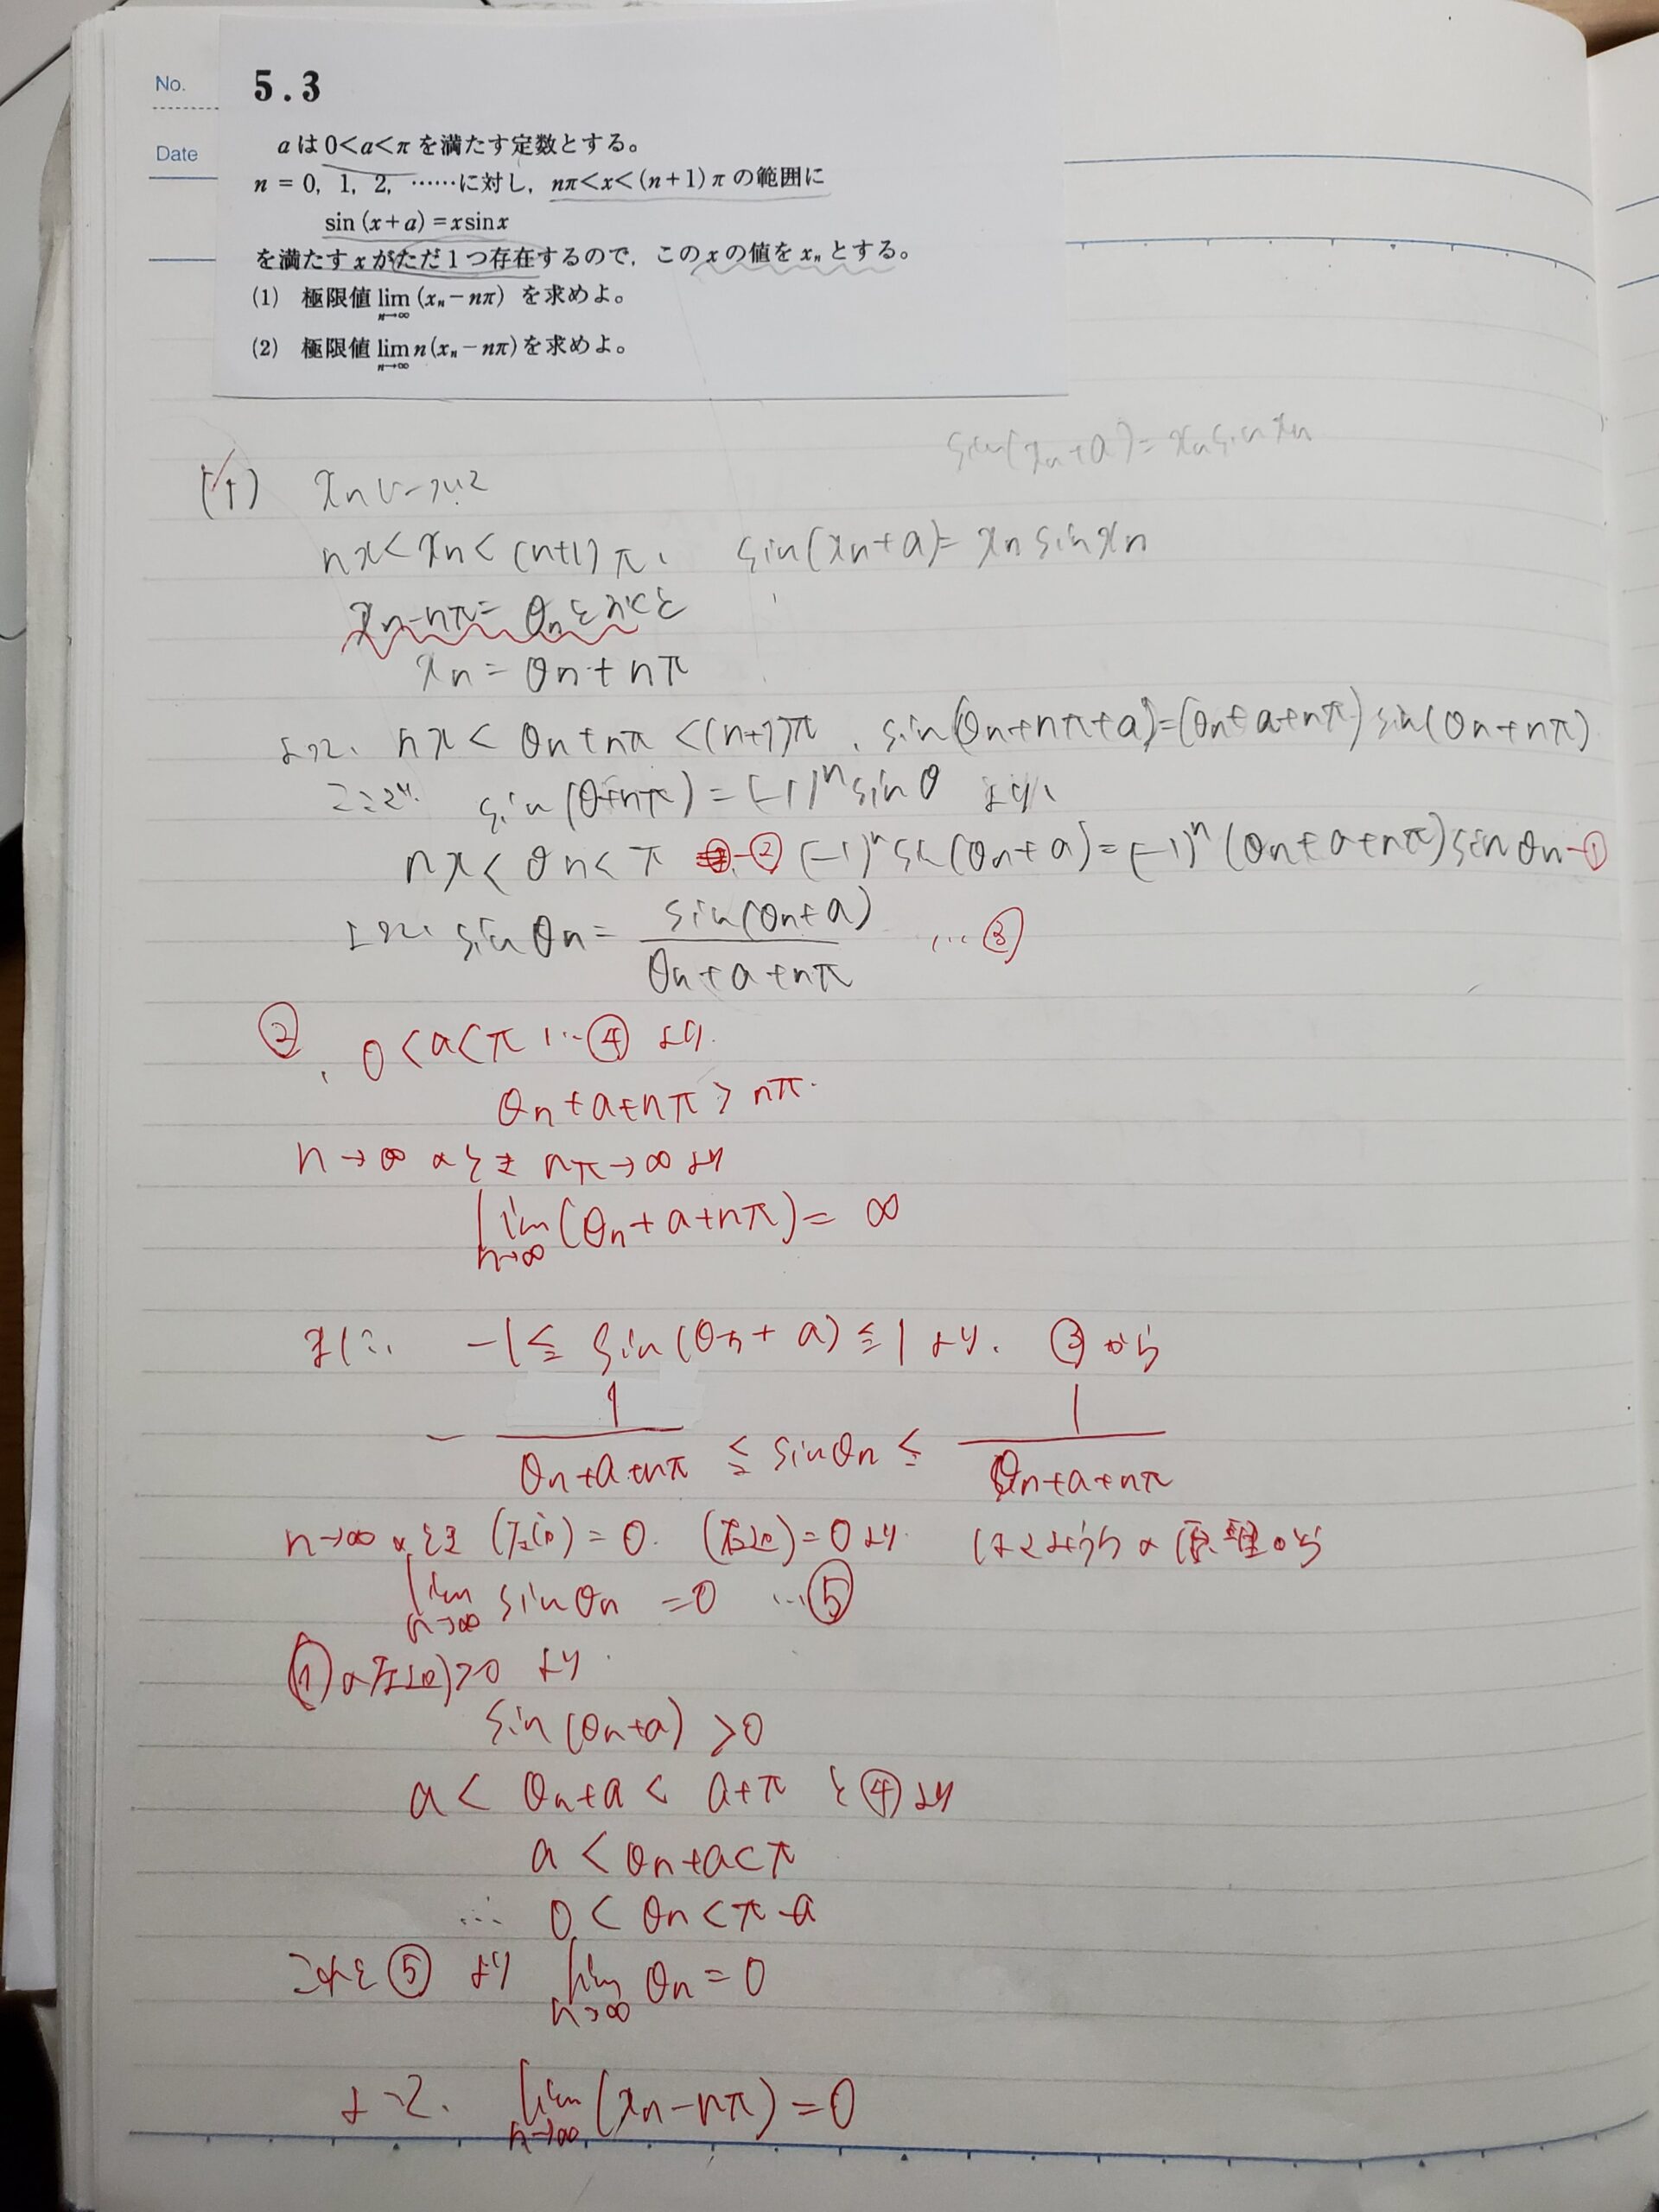 No.
Date
5.3
aは0<a<πを満たす定数とする。
n = 0, 1, 2, ……に対し, nπ<x<(n+1)πの範囲に
sin(x+a)=xsinx
を満たすxがただ1つ存在するので, このxの値をxₙとする。
(1) 極限値 lim n→∞ (xₙ−nπ) を求めよ。
(2) 極限値 lim n→∞ n(xₙ−nπ)を求めよ。
sin(xₙ+a)=xₙsinxₙ
(1) xₙについて
nπ<xₙ<(n+1)π, sin(xₙ+a)=xₙsinxₙ
xₙ−nπ=θₙとおくと
xₙ=θₙ+nπ
よって, nπ<θₙ+nπ<(n+1)π, sin(θₙ+nπ+a)=(θₙ+a+nπ)sin(θₙ+nπ)
ここで sin(θ+nπ)=(-1)ⁿsinθ より
nπ<θₙ<π -② (-1)ⁿsin(θₙ+a)=(-1)ⁿ(θₙ+a+nπ)sinθₙ-①
よって, sinθₙ= sin(θₙ+a)/(θₙ+a+nπ) …③
②, 0<a<π …④ より
θₙ+a+nπ>nπ
n→∞のとき nπ→∞より
lim n→∞ (θₙ+a+nπ)=∞
また, -1≦sin(θₙ+a)≦1より, ③から
-1/(θₙ+a+nπ) ≦ sinθₙ ≦ 1/(θₙ+a+nπ)
n→∞のとき (左辺)=0, (右辺)=0より はさみうちの原理から
lim n→∞ sinθₙ =0 …⑤
①の(左辺)>0 より
sin(θₙ+a)>0
a<θₙ+a<a+π と④より
a<θₙ+a<π
∴ 0<θₙ<π-a
これと⑤より lim n→∞ θₙ=0
よって, lim n→∞ (xₙ−nπ)=0